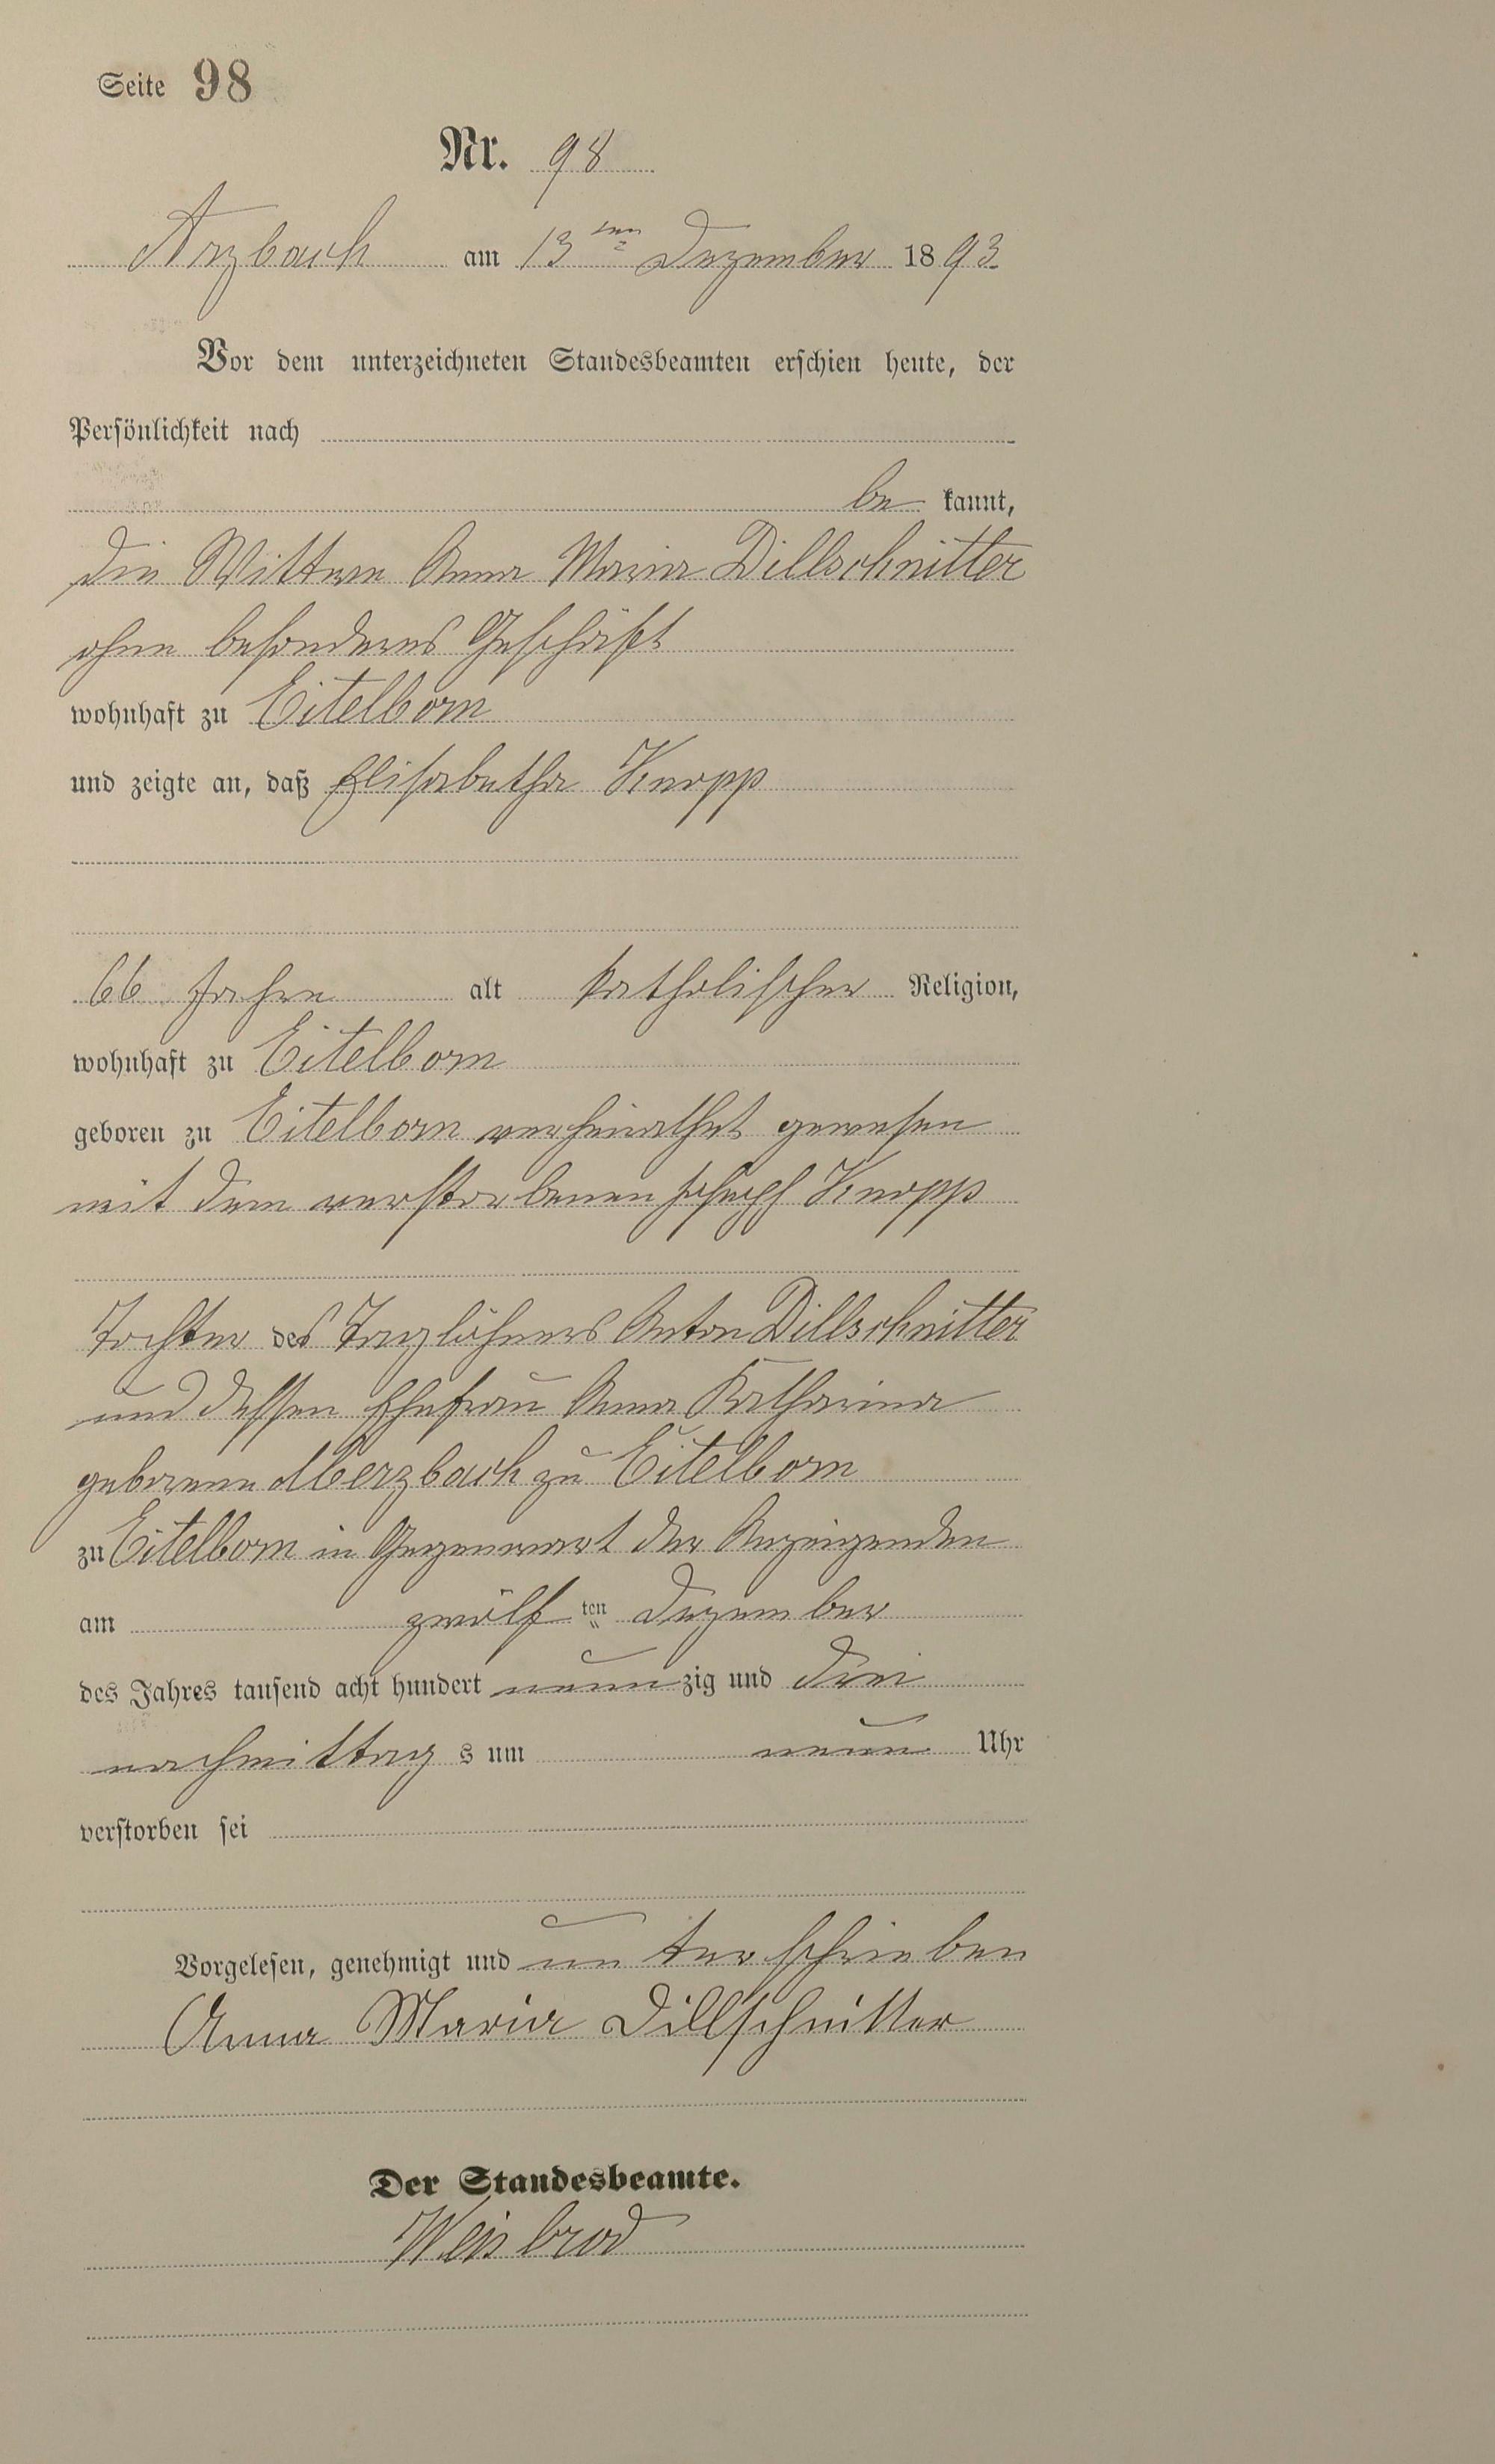 Seite 98
Nr. 98
Arzbach am 13ten Dezember 1893
Vor dem unterzeichneten Standesbeamten erschien heute, der
Persönlichkeit nach
be kannt,
die Wittwe Anna Maria Dillschnitter
ohne besonderes Geschäft
wohnhaft zu Eitelborn
und zeigte an, daß Elisabetha Knopp
66 Jahre alt katholischer Religion,
wohnhaft zu Eitelborn
geboren zu Eitelborn verheirathet gewesen
mit dem verstorbenen Joseph Knopp
Tochter des Taglöhners Anton Dillschnitter
und dessen Ehefrau Anna Katharina
geborene Merzbach zu Eitelborn
zu Eitelborn in Gegenwart der Anzeigenden
am zwölf ten Dezember
des Jahres tausend acht hundert neunzig und drei
nachmittag s um neun Uhr
verstorben sei
Vorgelesen, genehmigt und unterschrieben
Anna Maria Dillschnitter
Der Standesbeamte.
Weisbrod